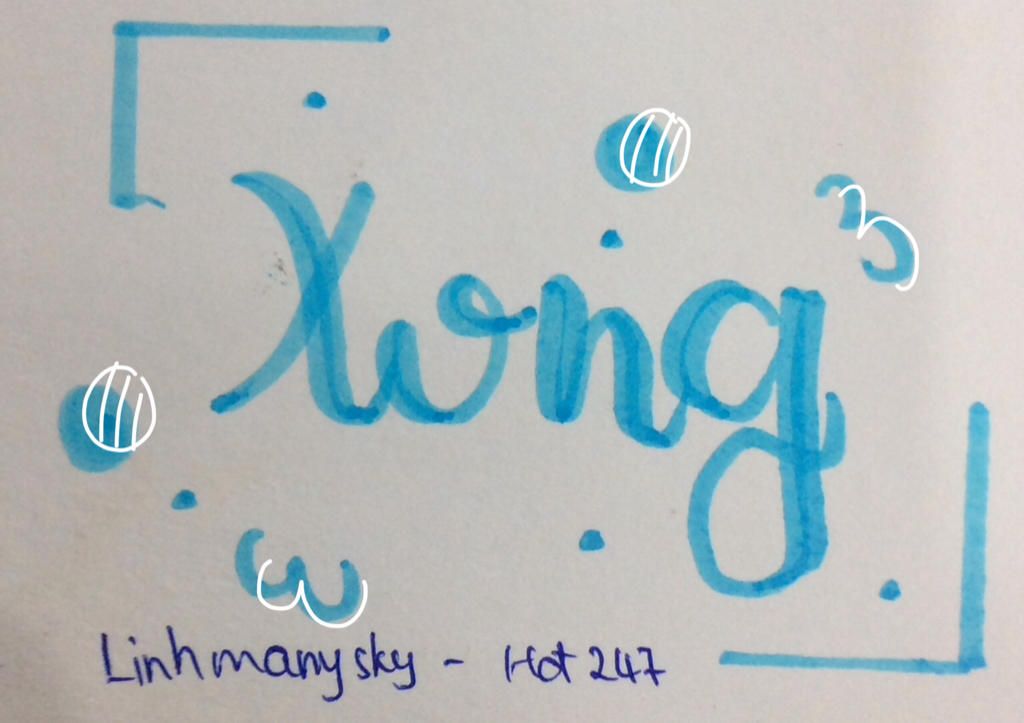 Xong
Linhmanysky - Hot 247